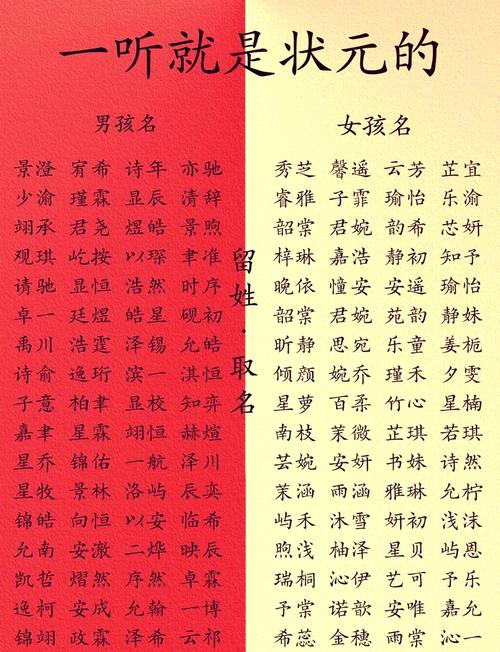 一听就是状元的
男孩名
景澄 宥希 诗年 亦驰
少渝 瑾霖 显辰 清辞
翊承 君尧 煜皓 景煦
观琪 屹按 以琛 聿准
请驰 显恒 浩然 时序
卓一 廷煜 皓星 砚初
禹川 浩霆 泽锡 允皓
诗俞 逸珩 滨一 淇恒
子意 柏聿 显校 知弈
嘉聿 星霖 翊恒 赫煊
星乔 锦佑 一航 泽川
星牧 景林 洛屿 辰奕
锦皓 向恒 以安 临希
允南 安澈 二烨 映辰
凯哲 熠然 序然 卓霖
逸柯 安成 允翰 一博
锦翊 政霖 泽希 云祁
留姓·取名
女孩名
秀芝 馨遥 云芳 芷宜
睿雅 子霏 瑜怡 乐渝
韶棠 君婉 韵希 芯妍
梓琳 嘉浩 静初 知予
晚依 憧安 安遥 瑜怡
韶棠 君婉 苑韵 静妹
昕静 思宛 乐童 姜栀
倾颜 婉乔 瑾禾 夕雯
星萝 百柔 竹心 星楠
南枝 茉微 芷琪 若琪
芸婉 安妍 书妹 诗然
茉涵 雨涵 雅琳 允柠
屿禾 沐雪 妍初 浅沫
煦浅 柚泽 星贝 屿恩
瑞桐 沁伊 艺可 予乐
予棠 诺歆 安唯 嘉允
希蕊 金穗 雨棠 沁一